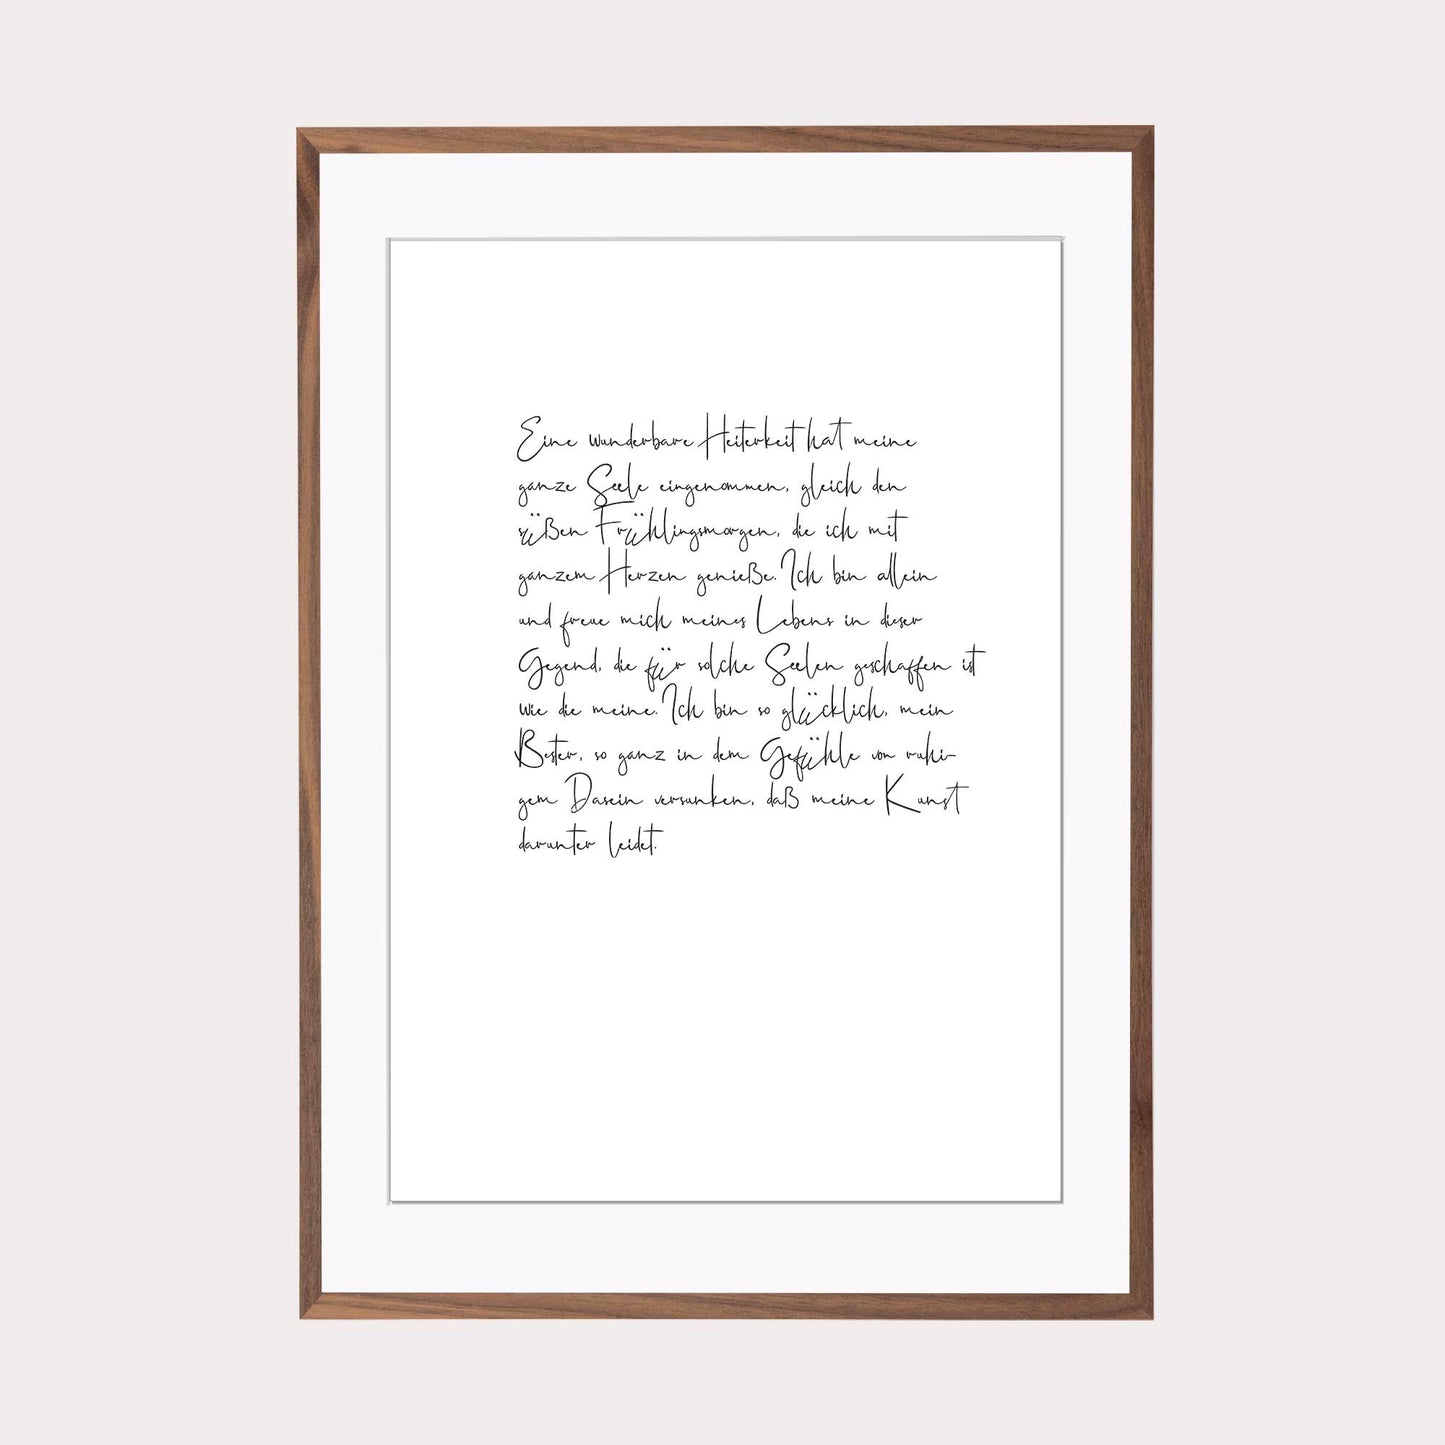 Eine wunderbare Heiterkeit hat meine
ganze Seele eingenommen, gleich den
süßen Frühlingsmorgen, die ich mit
ganzem Herzen genieße. Ich bin allein
und freue mich meines Lebens in dieser
Gegend, die für solche Seelen geschaffen ist
wie die meine. Ich bin so glücklich, mein
Bester, so ganz in dem Gefühle von ruhi-
gem Dasein versunken, daß meine Kunst
darunter leidet.